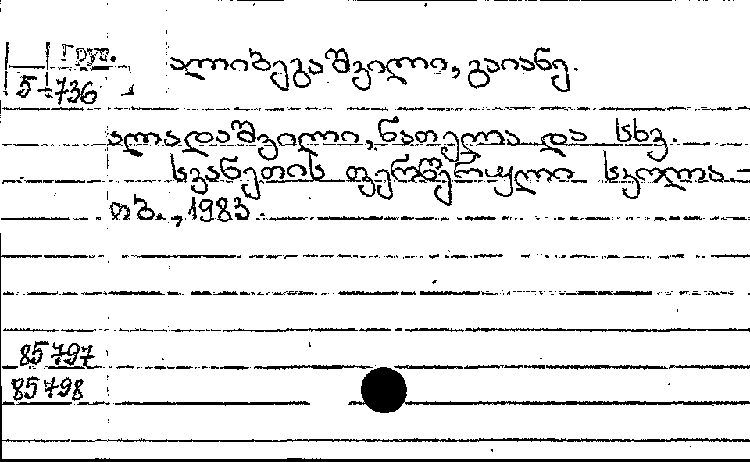 Груз.
5-736
ალიბეგაშვილი, გაიანე.
ალადაშვილი, ნათელა და სხვ.
სვანეთის ფერწერული სკოლა.-
თბ., 1983.
85797
85798